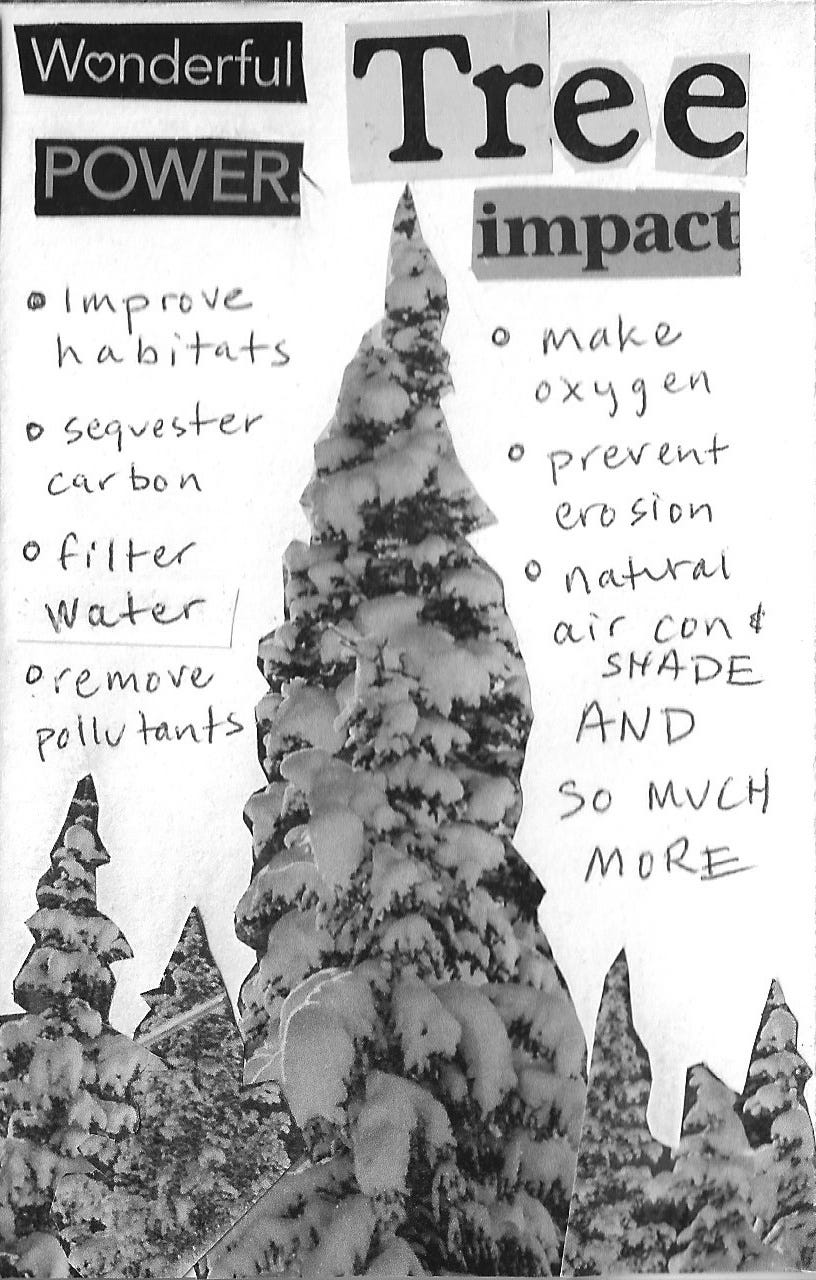 Wonderful
POWER.
Tree
impact
• Improve
habitats
• sequester
carbon
• filter
water
• remove
pollutants
• make
oxygen
• prevent
erosion
• natural
air con &
SHADE
AND
SO MUCH
MORE